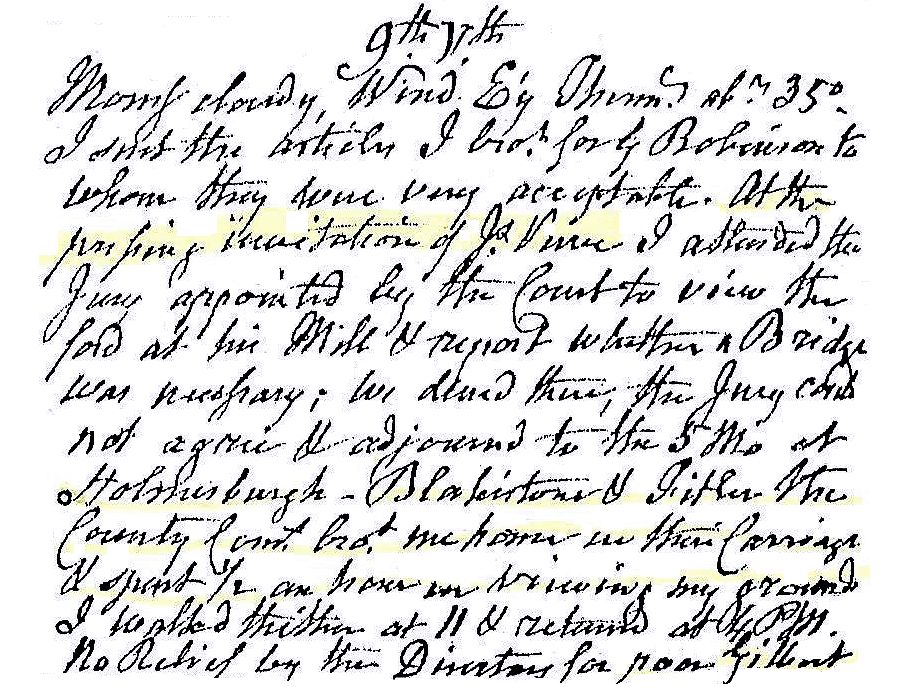 9th 7th
Morng cloudy, Wind E'y Therm.r ab.t 35°.
I sent the articles I bro.t for G Robinson to
whom they were very acceptable. At the
pressing invitation of Js Verree I attended the
Jury appointed by the Court to view the
ford at his Mill & report whether a Bridge
was necessary; we dined there, the Jury could
not agree & adjournd to the 5 Mo at
Holmesburgh - Blakistone & Fitler the
County Com.rs bro.t me home in their Carriage
& spent 1/2 an hour in viewing my ground
I walked thither at 11 & returnd at 4 PM.
No Relief by the Directors for poor Gilbert